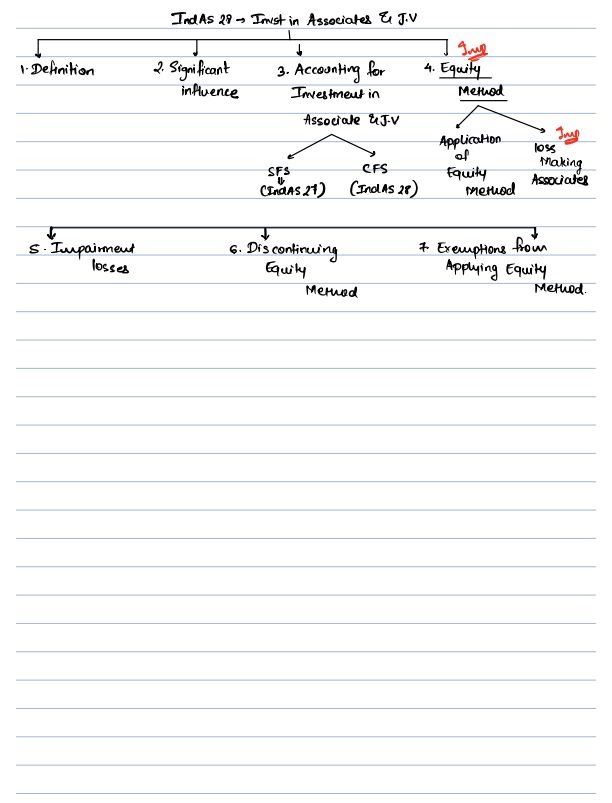 IndAS 28 → Invst in Associates & J.V
1. Definition
2. Significant
influence
3. Accounting for
Investment in
Associate & J.V
SFS
(IndAS 27)
CFS
(IndAS 28)
Imp
4. Equity
Method
Application
of
Equity
Method
Imp
loss
Making
Associates
5. Impairment
losses
6. Discontinuing
Equity
Method
7. Exemptions from
Applying Equity
Method.